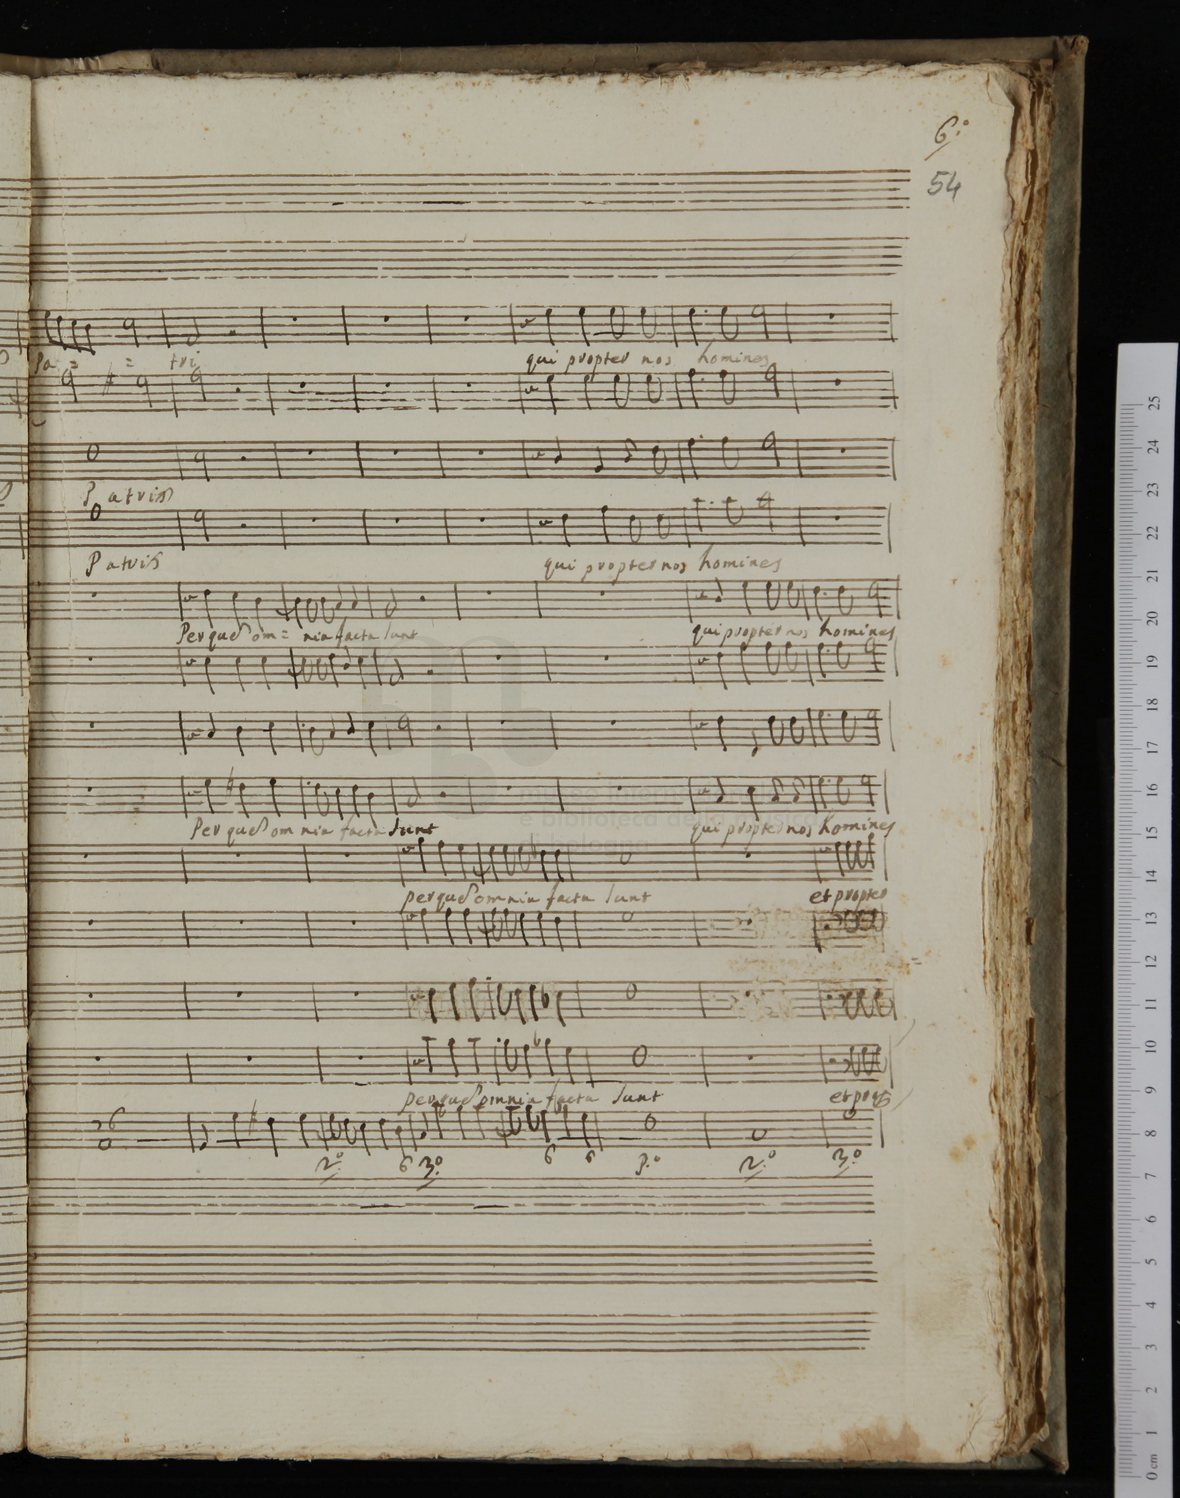 6:º
54
Pa = = tri
qui propter nos homines
Patris
Patris
qui propter nos homines
Per quem om = nia facta sunt
qui propter nos homines
Per quem omnia facta sunt
qui propter nos homines
per quem omnia facta sunt
et propter
per quem omnia facta sunt
et prop
6
2º 6 3º 6 6 3.º 2º 3º
museo internazionale
e biblioteca della musica
di bologna
25
24
23
22
21
20
19
18
17
16
15
14
13
12
11
10
9
8
7
6
5
4
3
2
1
0 cm